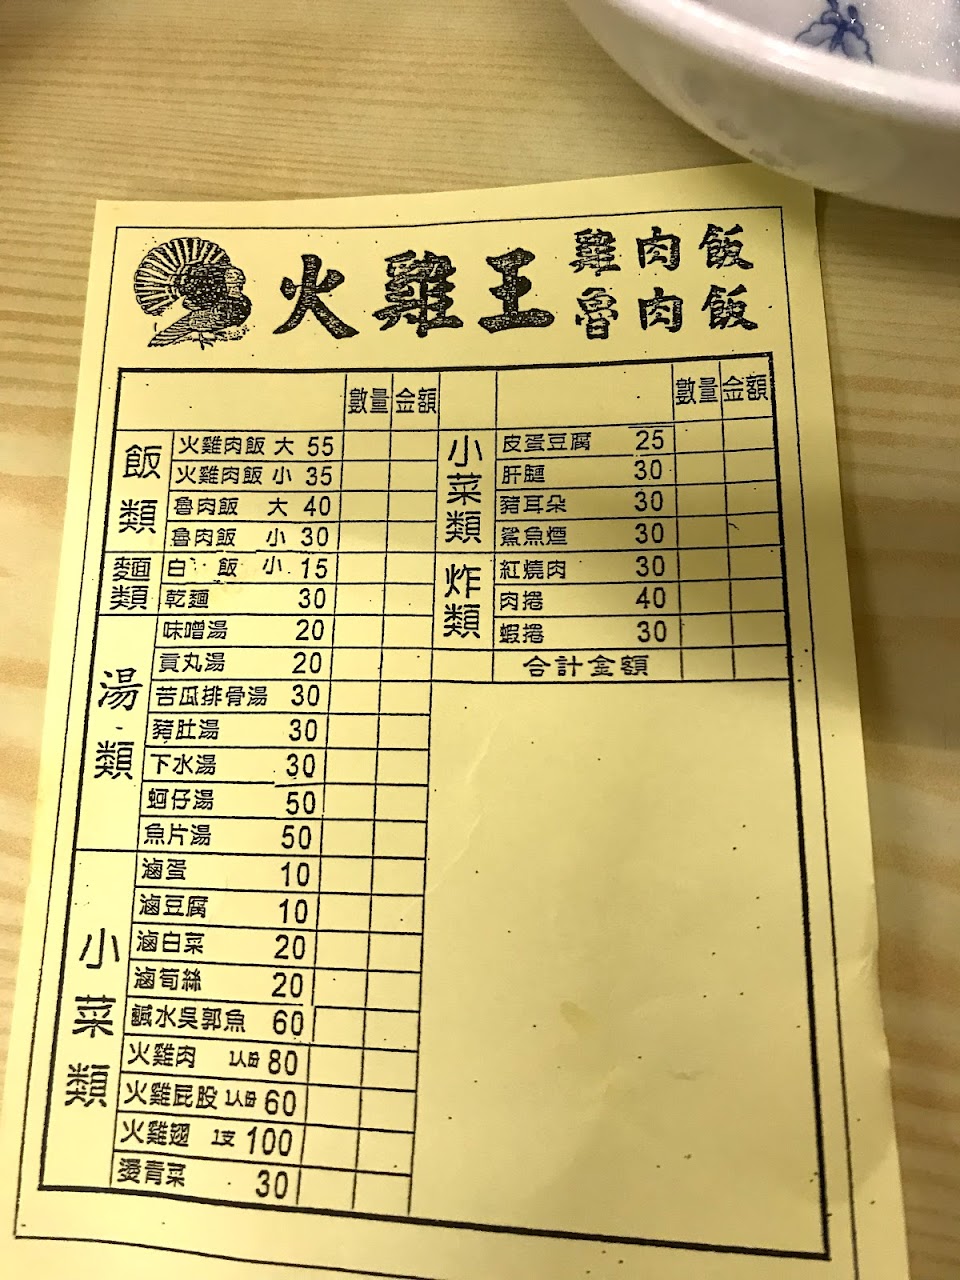 火雞王 雞肉飯
魯肉飯
數量 金額
飯類
火雞肉飯 大 55
火雞肉飯 小 35
魯肉飯 大 40
魯肉飯 小 30
麵類
白飯 小 15
乾麵 30
湯類
味噌湯 20
貢丸湯 20
苦瓜排骨湯 30
豬肚湯 30
下水湯 30
蚵仔湯 50
魚片湯 50
小菜類
滷蛋 10
滷豆腐 10
滷白菜 20
滷筍絲 20
鹹水吳郭魚 60
火雞肉 1人份 80
火雞屁股 1人份 60
火雞翅 1支 100
燙青菜 30
數量 金額
小菜類
皮蛋豆腐 25
肝膶 30
豬耳朵 30
鯊魚煙 30
炸類
紅燒肉 30
肉捲 40
蝦捲 30
合計金額